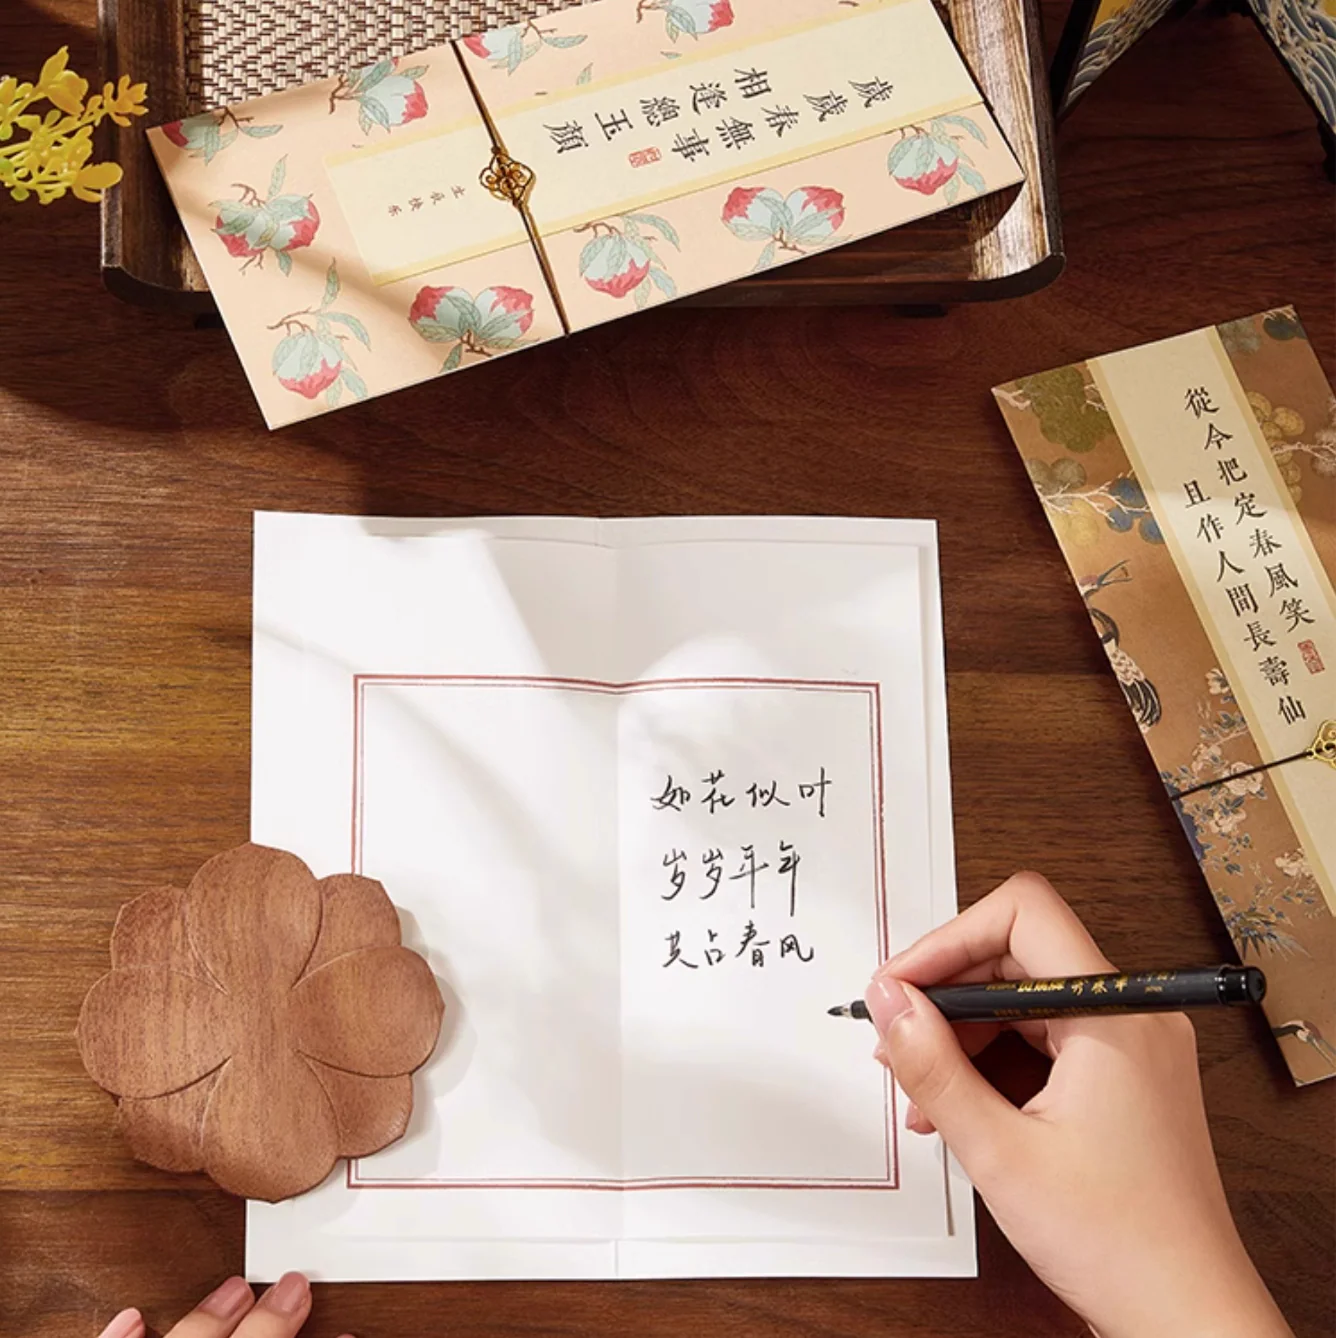 歲歲春無事
相逢總玉顏
生辰快乐
從今把定春風笑
且作人間長壽仙
如花似叶
岁岁年年
共占春风